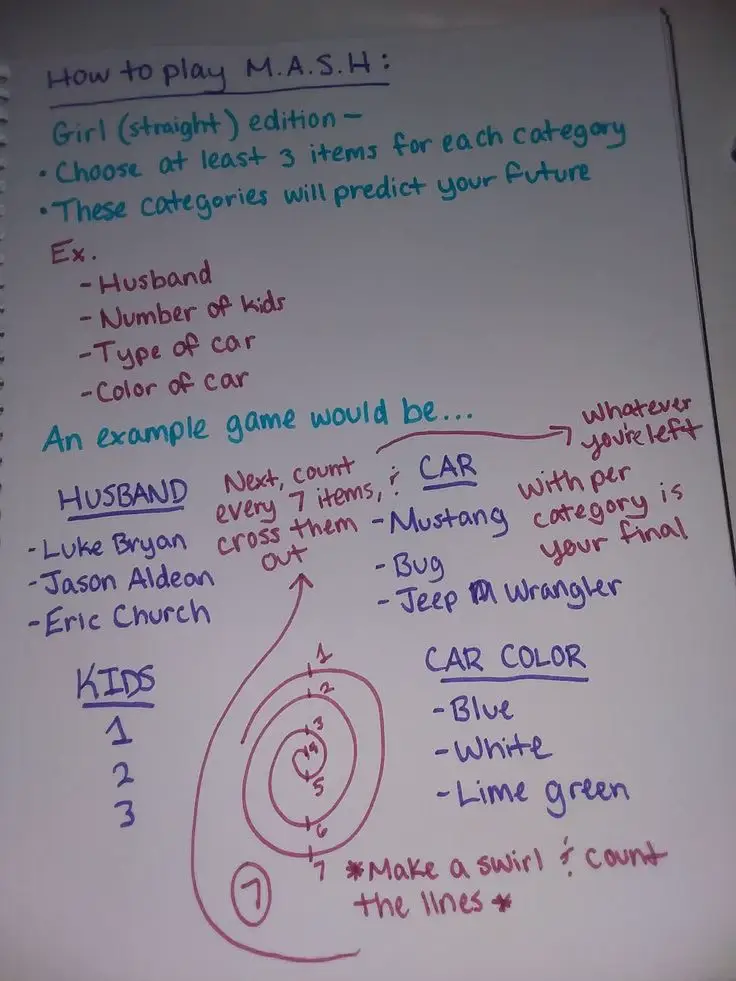 How to play M.A.S.H:
Girl (straight) edition—
• Choose at least 3 items for each category
• These categories will predict your future
Ex.
- Husband
- Number of kids
- Type of car
- Color of car
An example game would be...
HUSBAND
- Luke Bryan
- Jason Aldean
- Eric Church
Next, count
every 7 items, &
cross them
out
whatever
you're left
with per
category is
your final
CAR
- Mustang
- Bug
- Jeep Wrangler
KIDS
1
2
3
1
2
3
4
5
6
7
7
CAR COLOR
- Blue
- White
- Lime green
*Make a swirl & count
the lines*